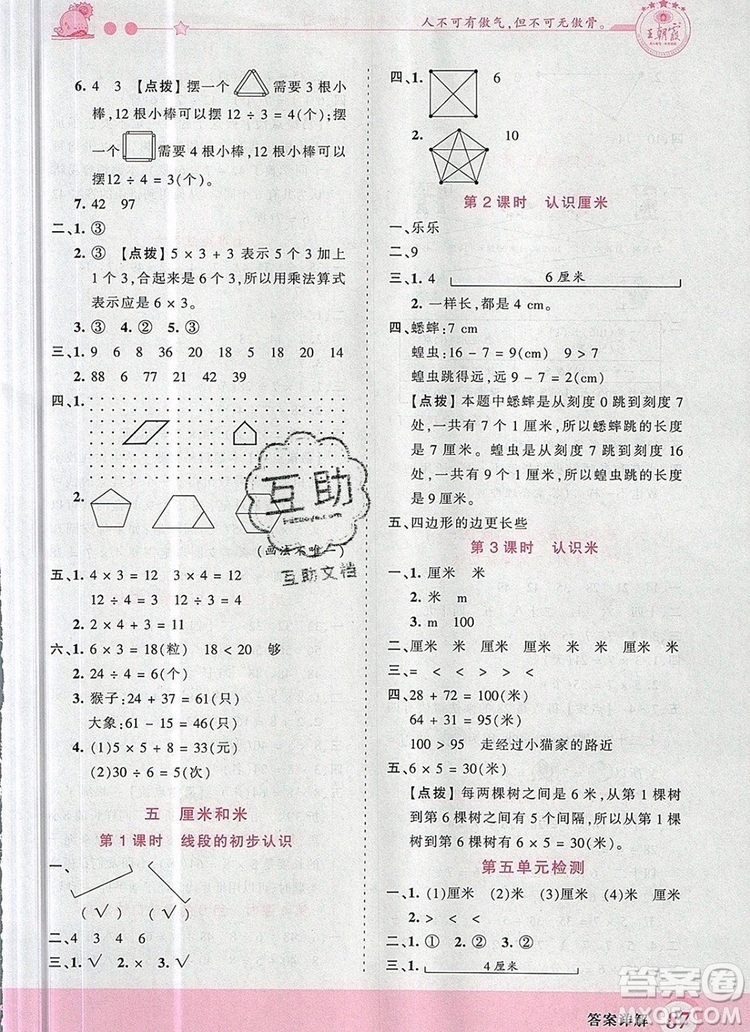 人不可有傲气,但不可无傲骨。
王朝霞
6. 4 3 【点拨】摆一个 需要 3 根小
棒,12 根小棒可以摆 12 ÷ 3 = 4(个);摆
一个 需要 4 根小棒,12 根小棒可
以摆12 ÷ 4 = 3(个)。
7. 42 97
二、1. ③
2. ③ 【点拨】5 × 3 + 3 表示 5 个 3 加上
1 个 3,合起来是 6 个 3,所以用乘法算式
表示应是 6 × 3。
3. ③ 4. ② 5. ③
三、1. 9 6 8 20 18 30 20 14
2. 88 6 77 21 67 70 39
四、1.
2.
(画法不唯一)
五、1. 4 × 3 = 12 3 × 4 = 12
12 ÷ 4 = 3 12 ÷ 3 = 4
2. 2 × 4 + 3 = 11
六、1. 6 × 3 = 18(粒) 18 < 20 够
2. 24 ÷ 4 = 6(元)
3. 猴子:24 + 37 = 61(只)
大象:61 - 15 = 46(只)
4. (1)5 × 5 + 8 = 33(元)
(2)30 ÷ 6 = 5(个)
五 厘米和米
第 1 课时 线段的初步认识
一、
(√) (√)
二、4 3 4 6
三、1. √ 2. × 3. √
四、1. 6
2. 10
第 2 课时 认识厘米
一、乐乐
二、9
三、1. 4 6 厘米
2. 一样长,都是 4 厘米。
四、蟋蟀:7 cm
蝗虫:16 - 7 = 9(cm)
蝗虫跳得远,远 9 - 7 = 2(cm)
【点拨】本题中蟋蟀是从刻度 0 跳到刻度 7
处,一共跳了 7 个 1 厘米,所以蟋蟀共跳
了 7 厘米。蝗虫是从刻度 7 跳到刻度 16
处,一共跳了 9 个 1 厘米,所以蝗虫共跳
了 9 厘米。
五、四边形的边更长些
第 3 课时 认识米
一、1. 厘米 米
2. 米 m
3. m 100
二、厘米 米 厘米 厘米 厘米 米
三、= < > < < >
四、28 + 72 = 100(米)
64 + 31 = 95(米)
100 > 95 走经过小猫家的路近
五、6 × 5 = 30(米)
【点拨】每两棵树之间是 6 米,从第 1 棵
树到第 6 棵树之间有 5 个间隔,所以从第
1 棵到第 6 棵有 6 × 5 = 30(米)。
第五单元检测
一、1. (1)厘米 (2)米 (3)厘米 (4)米 厘米
2. > < = <
二、1. ① 2. ② 3. ② 4. ②
三、1. 4 厘米
互助
互助文档
答案圈
答案详解 67